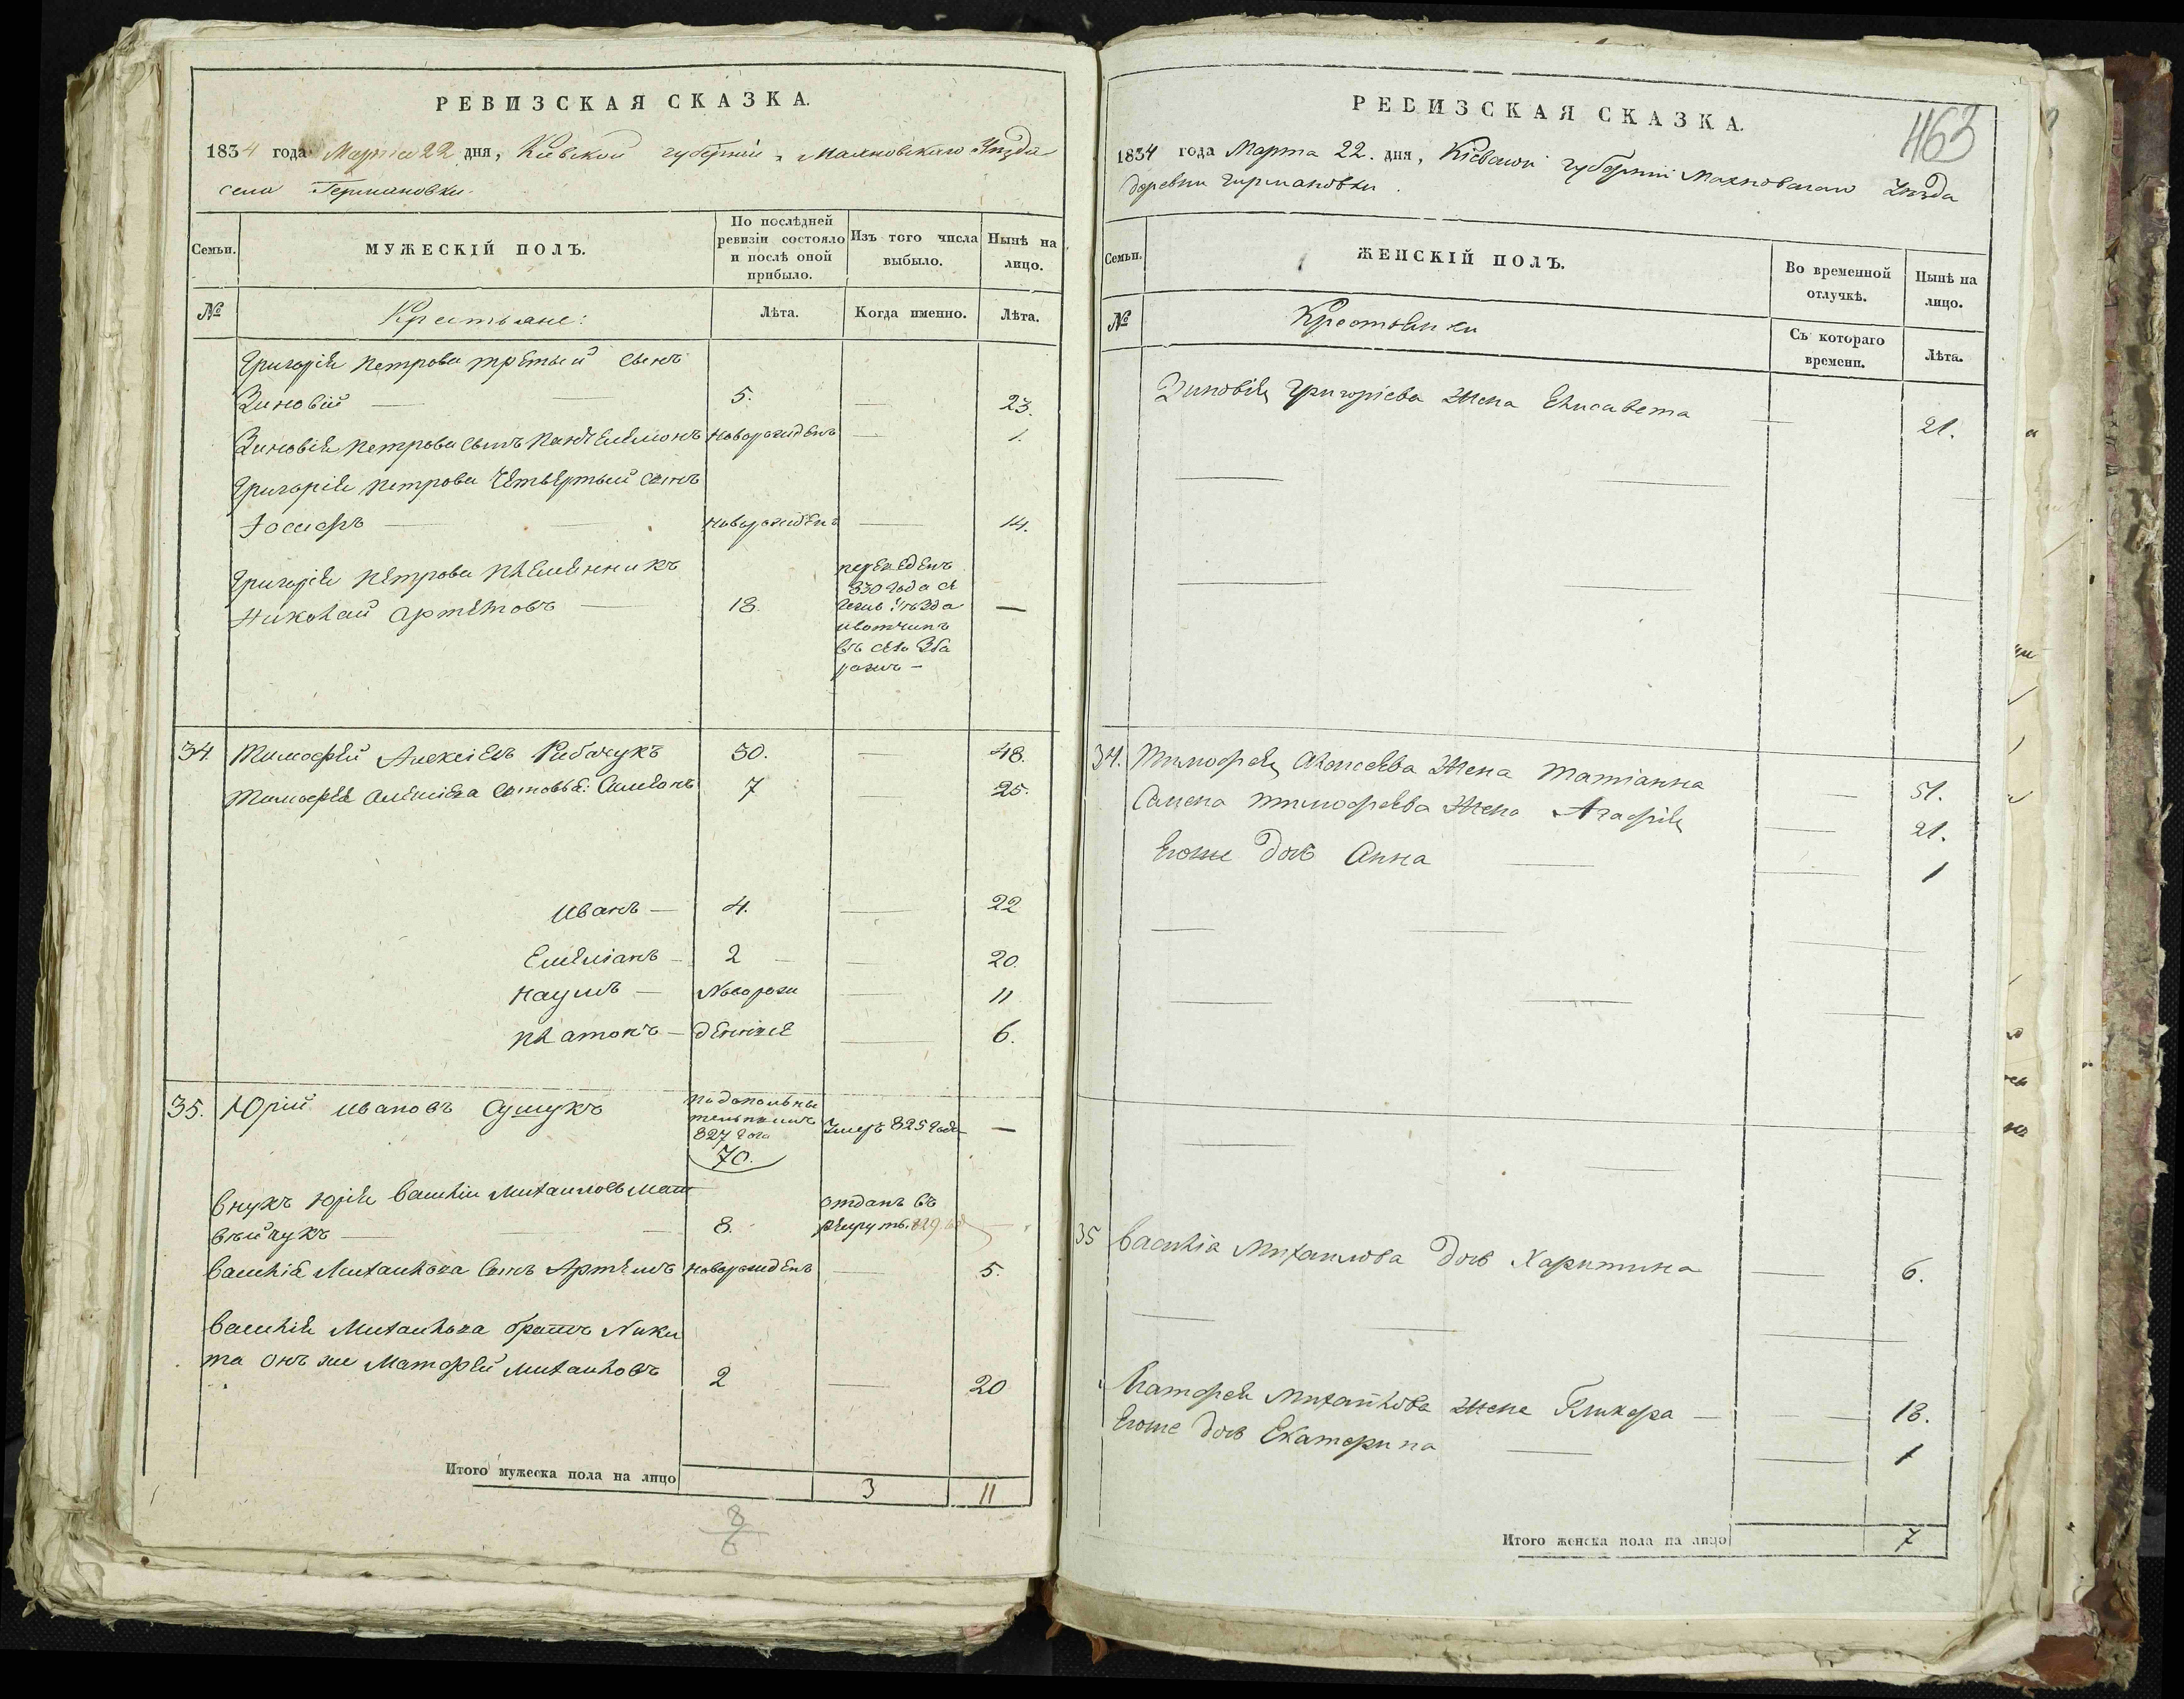 РЕВИЗСКАЯ СКАЗКА.
1834 года Марта 22 дня, Кіевской губерніи, Махновскаго Уѣзда
села Германовки.
Семьи.
МУЖЕСКІЙ ПОЛЪ.
По послѣдней ревизіи состояло и послѣ оной прибыло.
Изъ того числа выбыло.
Нынѣ на лицо.
№
Крестьяне:
Лѣта.
Когда именно.
Лѣта.
Григорія Петрова третый сынъ
Зиновій — 5. — 23.
Зиновія Петрова сынъ Пантелемонъ новорожденъ — 1.
Григорія Петрова четвертый сынъ
Іосифъ — новорожденъ — 14.
Григорія Петрова племенникъ
Николай Артемовъ — 18. —
переведенъ
830 года
уѣзда
въ село Зба
ражъ —
34. Тимофей Алексіевъ Рибачукъ 30. — 48.
Тимофея Алексіева сыновья: Симеонъ 7 — 25.
Иванъ — 4. — 22
Емеліанъ — 2 — 20.
Наумъ — Новорож — 11
Платонъ — денніе — 6.
35. Юрій Ивановъ
827 года
70.
Умеръ 825 года —
Внукъ Юрія Василій Михайловъ Мат
вѣйчукъ — 8.
отданъ въ
рекруты 829 —
Василія Михайлова сынъ Артемъ новорожденъ — 5.
Василія Михайлова братъ Ники
та онъ же Матфей Михайловъ 2 — 20
Итого мужеска пола на лицо 3 11
8
6
463
РЕВИЗСКАЯ СКАЗКА.
1834 года Марта 22. дня, Кіевской губерніи Махновскаго Уѣзда
деревни Гирмановки.
Семьи.
ЖЕНСКІЙ ПОЛЪ.
Во временной отлучкѣ.
Нынѣ на лицо.
№
Крестьянки
Съ котораго времени.
Лѣта.
Зиновія Григорієва жена Елисавета — 21.
34. Тимофея Алексеева жена Татіанна — 51.
Семена Тимофеева жена Агафія — 21.
Егоже дочь Анна — 1
35 Василія Михайлова дочь Харитина — 6.
Матфея Михайлова жена Гликера — 18.
Егоже дочь Екатерина — 1
Итого женска пола на лицо 7